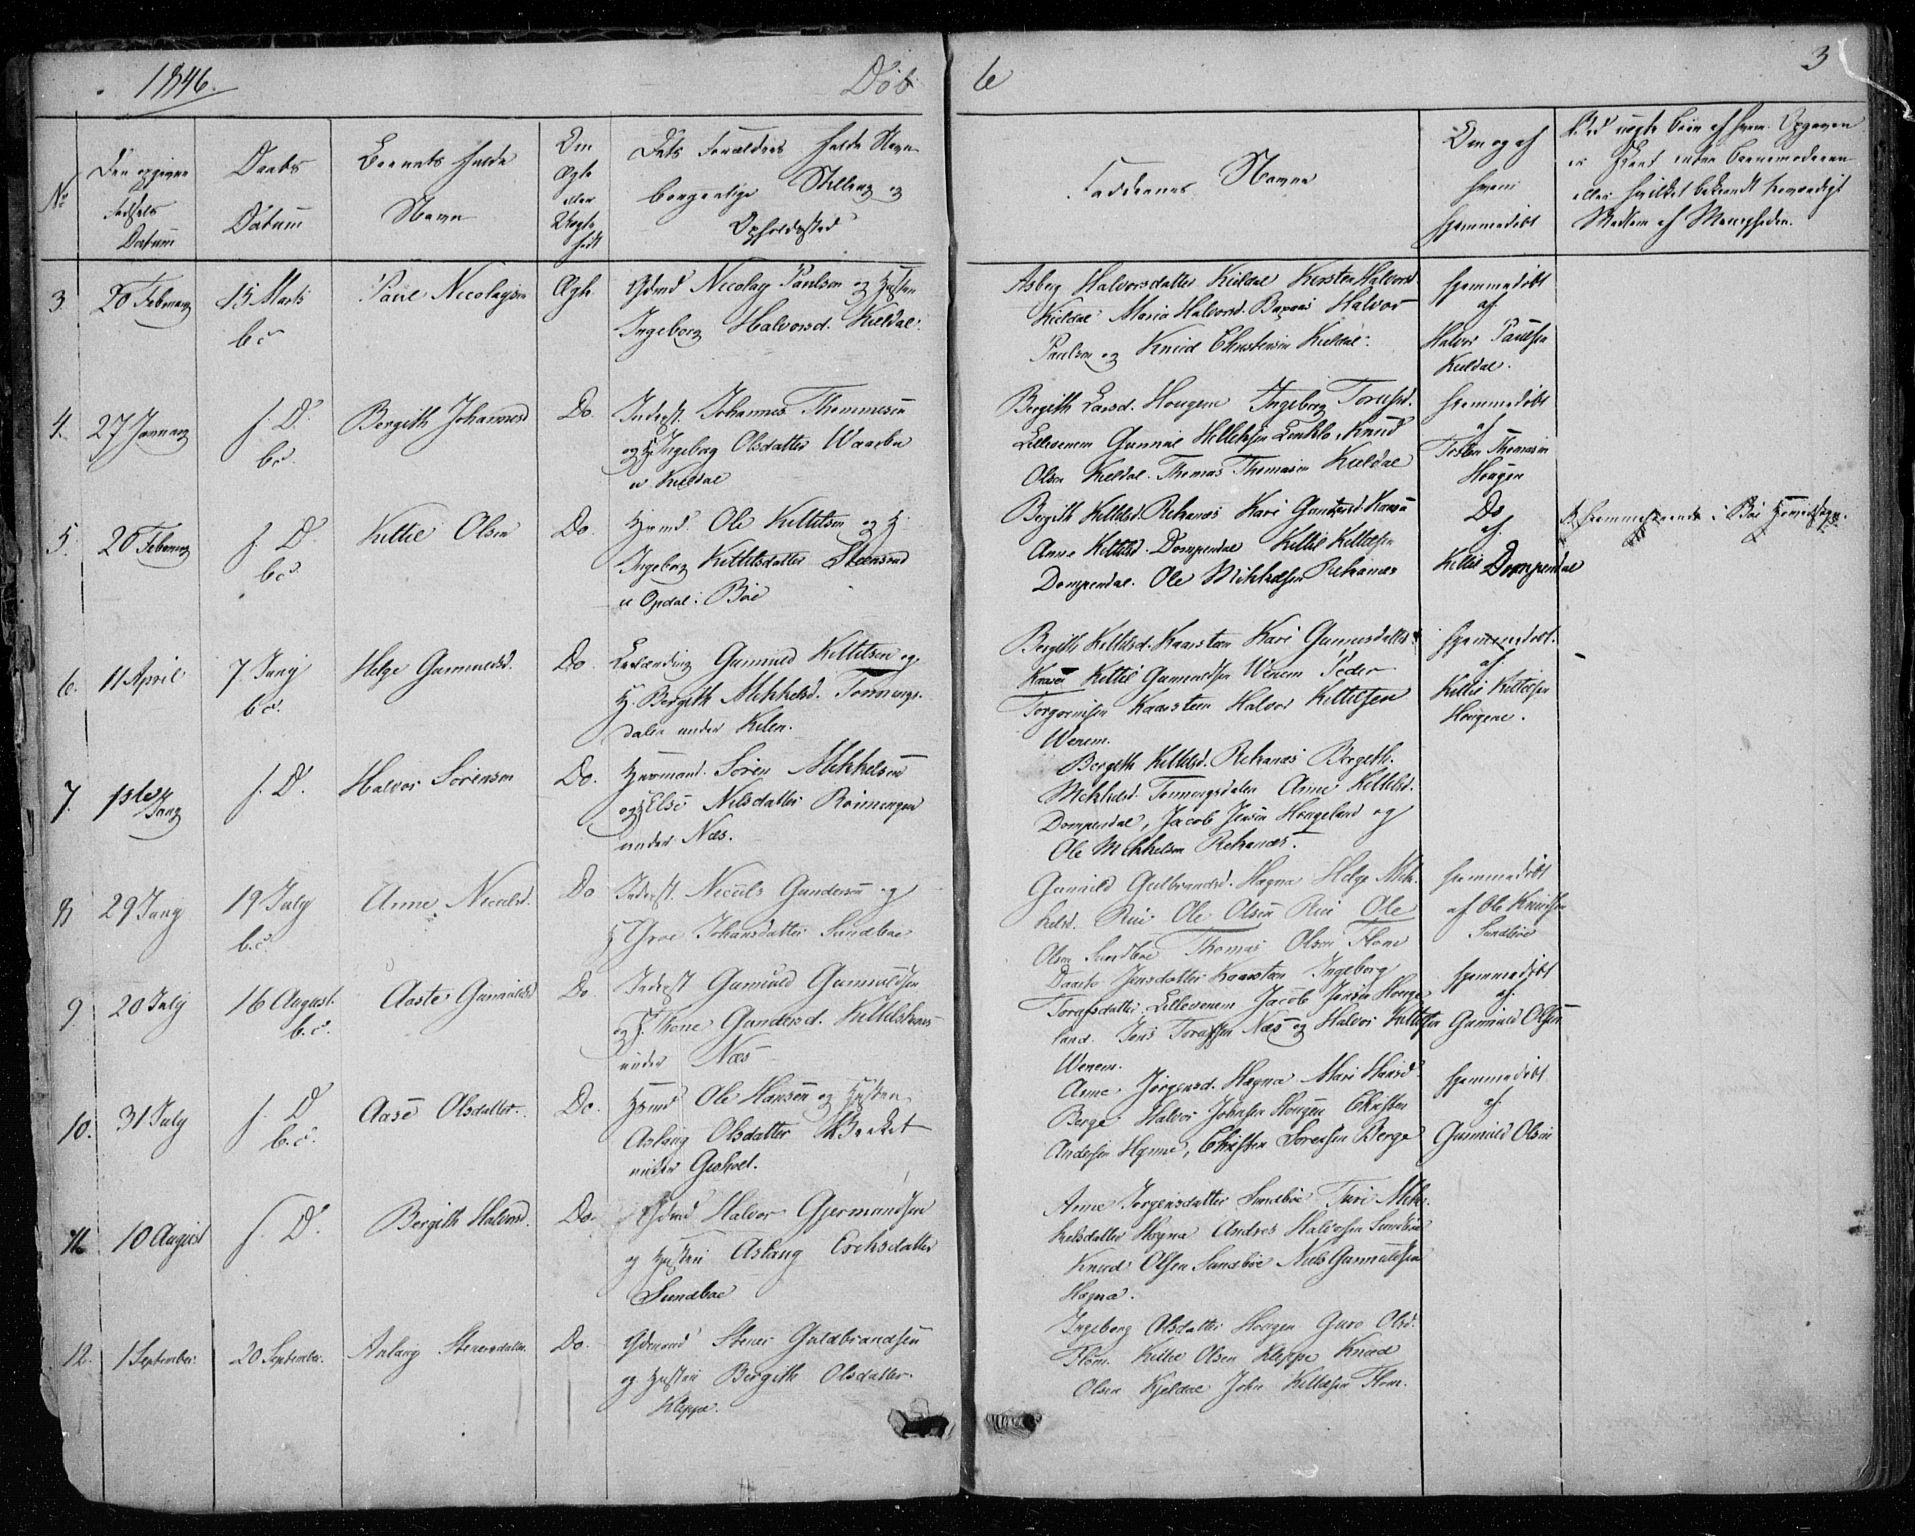 1846.
Døb
te
3
No
Den opgivne
Fødsels
Datum
Daabs
Datum
Barnets fulde
Navn
Om
Ægte
eller
Uægte
født
Dets Forældres fulde Navn
borgerlige Stilling og
Opholdssted
Faddernes Navne
Om og af
hvem
hjemmedøbt
Ved uægte Børn af hvem Opgaven
er skeet enten Barnemoderen
eller hvilket bekiendt troværdigt
Medlem af Menigheden.
3
20 Februar
15 Marts
b. c
Paul Nicolaysen
Ægte
Gbmd Nicolay Paulsen og Husten
Ingeborg Halvorsd. Kieldal.
Asberg Halvorsdatter Kieldal Kirsten Halvorsd.
Kieldal Maria Halvorsd. Halvor
Paulsen og Knud Christensen Kieldal.
hjemmedøbt
af
Halvor Paulsen
Kieldal.
4.
27 Januar
s. D.
b. c.
Bergith Johannesd
Do
Inderst. Johannes Thommesen
og H. Ingeborg Olsdatter Waarbu
u Kieldal
Bergith Larsd. Hougene Ingeborg Torufsd.
Lillevenem Gunnul Kittilsen Knud
Olsen Kieldal. Thomas Thomasen Kieldal
hjemmedøbt
af
Thomasen
Hougen
5.
26 Februar
s. D.
b. c.
Kittil Olsen
Do.
Huusmd. Ole Kittilsen og H
Ingeborg Kittilsdatter Steensrud
u Opdal i Bøe
Bergith Kittilsd. Rekanæs Kari Gundersd. Kaasa
Anne Kittilsd. Dompendal Kittil Kittilsen
Dompendal. Ole Mikkelsen Rekanæs
Do
af
Kittil Dompendal
hjemmehørende i Bøe Hovedsogn.
6.
11 April
7. Juny
b. c.
Helge Gunnuldsd.
Do.
Gunnuld Kittilsen og
H. Bergith Mikkelsd. Tonnings-
dalen under Kilen.
Bergith Kittilsd. Kaasteen Kari Gunnersdatter
Kaasa Kittil Gunnuldsen Wenem Peder
Torgrimsen Kaasteen Halvor Kittilsen
Wenem.
hjemmedøbt.
af
Kittil Kittilsen
Hougene.
7.
1ste Juny
s. D.
Halvor Sørensen
Do.
Huusmand. Søren Mikkelsen
og H Else Nilsdatter Roimengen
under Næs.
Bergith Kittilsd. Rekanæs Bergith.
Mikkelsd. Tonningsdalen Anne Kittilsd.
Dompendal, Jacob Jensen Hougeland og
Ole Mikkelsen Rekanæs.
8
29 Juny
19 July
b. c.
Anne Niculsd.
Do
Inderst. Niculs Gundersen og
H Groe Johansdatter Sundboe
Gunild Gulbrandsd. Hagna Helge Mik-
kelsd. Rui Ole Olsen Rui Ole
Olsen Sundboe Thomas Olsen Flom
hjemmedøbt
af Ole Knudsen
Sundboe
9.
20 July
16 August.
b. c.
Aaste Gunnuldsd
Do.
Inderst Gunnuld Gunnuldsen
og H. Thone Gundersd. Kittilshaus
under Næs
Daarto Jensdatter Kaasteen Ingeborg
Torufsdatter Lillevenem Jacob Jensen Houge-
land. Jens Torufsen Næs og Halvor Kittilsen
Wenem.
hjemmedøbt
af.
Gunnuld Olsen
10.
31 July
s. D
b. c.
Aase Olsdatter.
Do.
Hsmd Ole Hansen og Husten
Aslaug Olsdatter Bakket
under Gishoel.
Anne Jørgensd. Hagna Mari Hansd.
Berge Halvor Johnsen Hougen Christen
Andersen Hynne, Christen Sørensen Berge
hjemmedøbt
af.
Gunnuld Olsen
11
10 August
s. D.
Bergith Halvorsd.
Do.
Gbmd Halvor Gjermundsen
og Husten Aslaug Ericksdatter
Sundboe
Anne Jørgensdatter Sundboe Turi Mik-
kelsdatter Hagna Andres Halvorsen Sundboe
Knud Olsen Sundboe Niels Gunnuldsen
Hagna.
12.
1 September.
20 September.
Aslaug Stenersdatter.
Do.
Gbmand Stener Guldbrandsen
og Husten Bergith Olsdatter.
Kleppe.
Ingeborg Olsdatter Hougen Guro Olsd.
Flom. Kittil Olsen Kleppe Knud
Olsen Kjeldal John Kittilsen Flom.